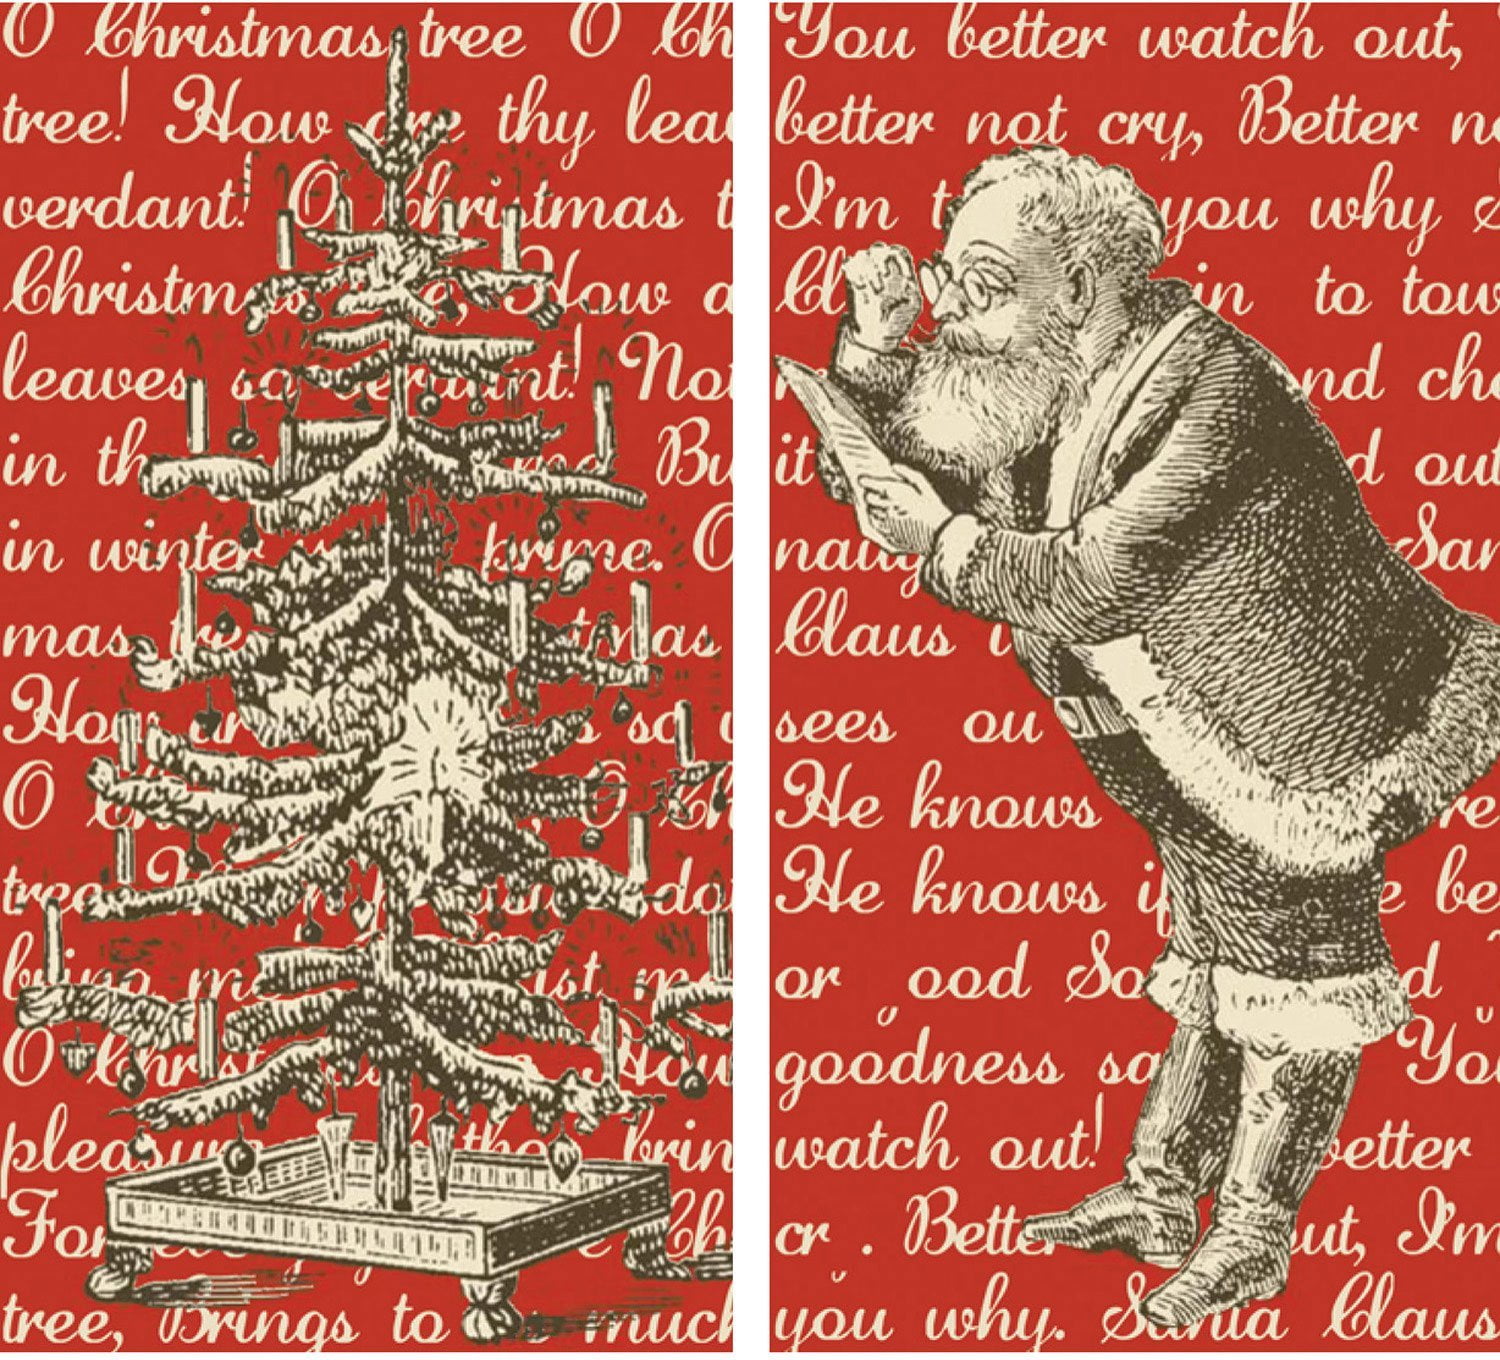 O Christmas tree O Ch
tree! How are thy lea
verdant! O Christmas t
Christmas How a
leaves so verdant! Not
in th me Bu
in winter prime. O
mas tre tmas
How ar s so v
O Ch O Ch
tree dot
bring me ist m
O Christ How
pleasure bring
For Ch
tree, Brings to much
You better watch out,
better not cry, Better no
I'm t you why S
Cl in to tow
nd che
it d out
naug San
Claus i
sees ou
He knows re
He knows if e be
or ood So d
goodness sa You
watch out! better
cr . Better ut, I'm
you why. Santa Claus